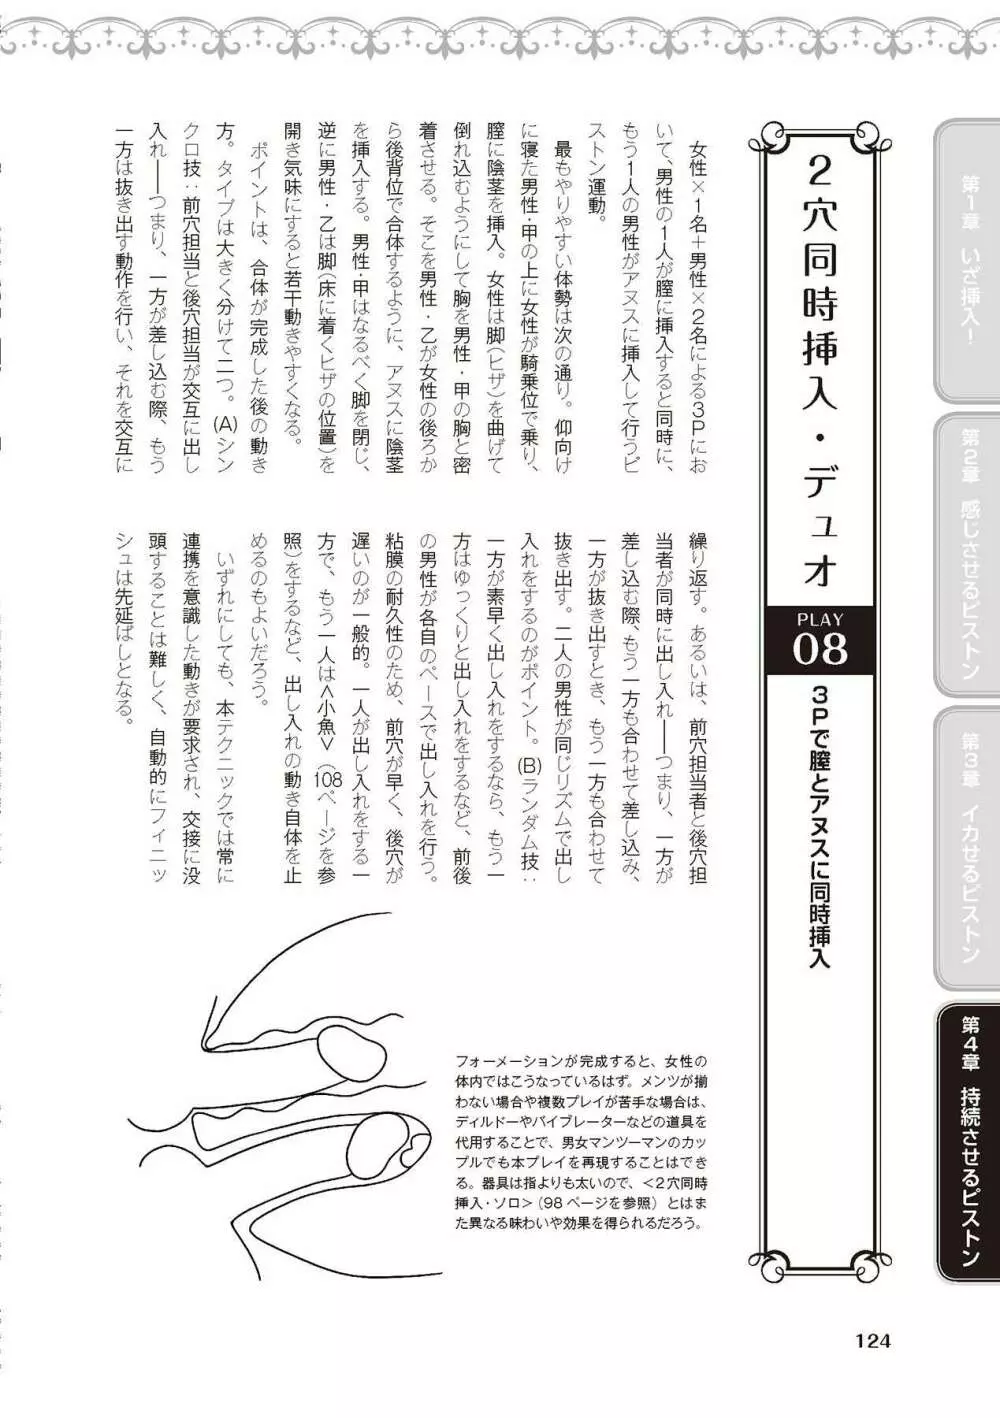 第1章 いざ挿入!
第2章 感じさせるピストン
第3章 イカせるピストン
第4章 持続させるピストン
2穴同時挿入・デュオ
PLAY
08
3Pで膣とアヌスに同時挿入
女性×1名+男性×2名による3Pにお
いて、男性の1人が膣に挿入すると同時に、
もう1人の男性がアヌスに挿入して行うピ
ストン運動。
最もやりやすい体勢は次の通り。仰向け
に寝た男性・甲の上に女性が騎乗位で乗り、
膣に陰茎を挿入。女性は脚(ヒザ)を曲げて
倒れ込むようにして胸を男性・甲の胸と密
着させる。そこを男性・乙が女性の後ろか
ら後背位で合体するように、アヌスに陰茎
を挿入する。男性・甲はなるべく脚を閉じ、
逆に男性・乙は脚(床に着くヒザの位置)を
開き気味にすると若干動きやすくなる。
ポイントは、合体が完成した後の動き
方。タイプは大きく分けて二つ。(A)シン
クロ技:前穴担当と後穴担当が交互に出し
入れ――つまり、一方が差し込む際、もう
一方は抜き出す動作を行い、それを交互に
繰り返す。あるいは、前穴担当者と後穴担
当者が同時に出し入れ――つまり、一方が
差し込む際、もう一方も合わせて差し込み、
一方が抜き出すとき、もう一方も合わせて
抜き出す。二人の男性が同じリズムで出し
入れをするのがポイント。(B)ランダム技:
一方が素早く出し入れをするなら、もう一
方はゆっくりと出し入れをするなど、前後
の男性が各自のペースで出し入れを行う。
粘膜の耐久性のため、前穴が早く、後穴が
遅いのが一般的。一人が出し入れをする一
方で、もう一人は<小魚>(108ページを参
照)をするなど、出し入れの動き自体を止
めるのもよいだろう。
いずれにしても、本テクニックでは常に
連携を意識した動きが要求され、交接に没
頭することは難しく、自動的にフィニッ
シュは先延ばしとなる。
フォーメーションが完成すると、女性の
体内ではこうなっているはず。メンツが揃
わない場合や複数プレイが苦手な場合は、
ディルドーやバイブレーターなどの道具を
代用することで、男女マンツーマンのカッ
プルでも本プレイを再現することはでき
る。器具は指よりも太いので、<2穴同時
挿入・ソロ>(98ページを参照)とはま
た異なる味わいや効果を得られるだろう。
124